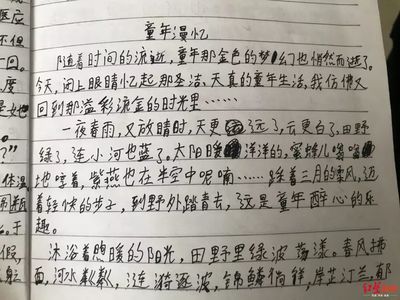 童年漫忆
随着时间的流逝，童年那金色的梦幻也悄然而逝了。
今天，闭上眼睛忆起那圣洁、天真的童年生活，我仿佛又
回到那溢彩流金的时光里……
一夜春雨，又放晴时，天更远了，云更白了，田野
绿了，连小河也蓝了。太阳暖洋洋的，蜜蜂儿嗡嗡
地哼着，紫燕也在半空中呢喃……踩着三月的柔风，迈
着轻快的步子，到野外踏青去，这是童年醉心的乐
趣。
沐浴着煦暖的阳光，田野里绿波荡漾。春风拂
面，河水粼粼，涟漪逐波，锦鳞徜徉，岸芷汀兰，郁
医应
不但
一回。
度
体温
假，